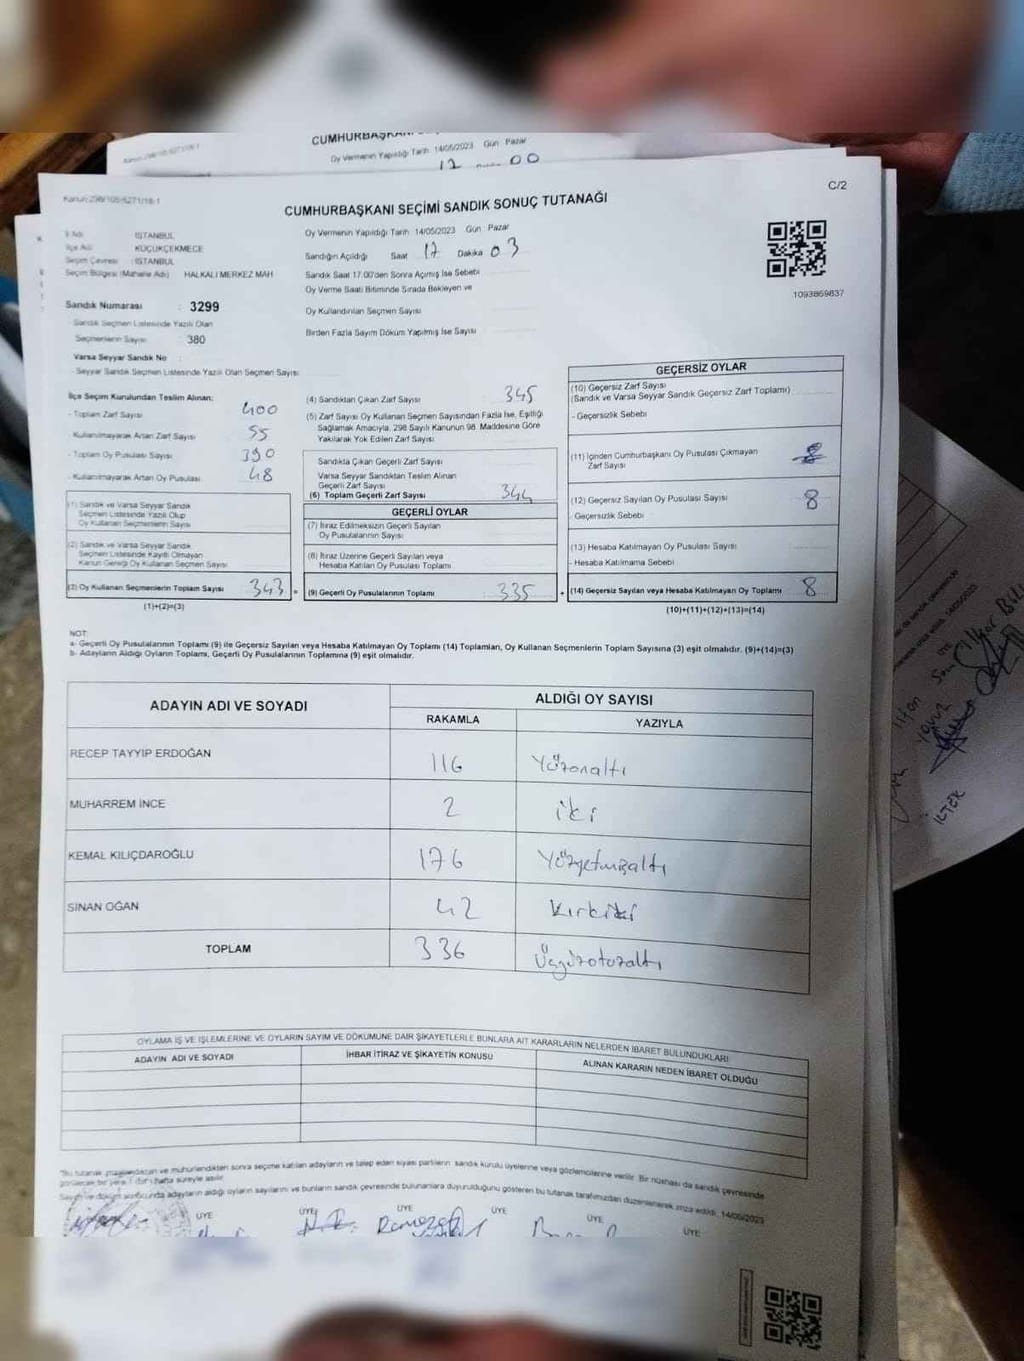 CUMHURBAŞKANI
Oy Vermenin Yapıldığı Tarih 14/05/2023 Gün Pazar
12 00
Kanun:298/105-6271/18-1
C/2
CUMHURBAŞKANI SEÇİMİ SANDIK SONUÇ TUTANAĞI
İl Adı : İSTANBUL
İlçe Adı : KÜÇÜKÇEKMECE
Seçim Çevresi : İSTANBUL
Seçim Bölgesi (Mahalle Adı) HALKALI MERKEZ MAH
Oy Vermenin Yapıldığı Tarih 14/05/2023 Gün Pazar
Sandığın Açıldığı Saat 17 Dakika 03
Sandık Saat 17:00'den Sonra Açılmış İse Sebebi
Oy Verme Saati Bitiminde Sırada Bekleyen ve
Oy Kullandırılan Seçmen Sayısı
Birden Fazla Sayım Döküm Yapılmış İse Sayısı
1093869837
Sandık Numarası : 3299
- Sandık Seçmen Listesinde Yazılı Olan
Seçmenlerin Sayısı 380
Varsa Seyyar Sandık No
- Seyyar Sandık Seçmen Listesinde Yazılı Olan Seçmen Sayısı
İlçe Seçim Kurulundan Teslim Alınan:
- Toplam Zarf Sayısı 400
- Kullanılmayarak Artan Zarf Sayısı 55
- Toplam Oy Pusulası Sayısı 390
- Kullanılmayarak Artan Oy Pusulası 48
(1) Sandık ve Varsa Seyyar Sandık
Seçmen Listesinde Yazılı Olup
Oy Kullanan Seçmenlerin Sayısı
(2) Sandık ve Varsa Seyyar Sandık
Seçmen Listesinde Kayıtlı Olmayan
Kanun Gereği Oy Kullanan Seçmen Sayısı
(3) Oy Kullanan Seçmenlerin Toplam Sayısı 343 =
(1)+(2)=(3)
(4) Sandıktan Çıkan Zarf Sayısı 345
(5) Zarf Sayısı Oy Kullanan Seçmen Sayısından Fazla İse, Eşitliği
Sağlamak Amacıyla, 298 Sayılı Kanunun 98. Maddesine Göre
Yakılarak Yok Edilen Zarf Sayısı
Sandıkta Çıkan Geçerli Zarf Sayısı
Varsa Seyyar Sandıktan Teslim Alınan
Geçerli Zarf Sayısı
(6) Toplam Geçerli Zarf Sayısı 344
GEÇERLİ OYLAR
(7) İtiraz Edilmeksizin Geçerli Sayılan
Oy Pusulalarının Sayısı
(8) İtiraz Üzerine Geçerli Sayılan veya
Hesaba Katılan Oy Pusulası Toplamı
(9) Geçerli Oy Pusulalarının Toplamı 335 +
GEÇERSİZ OYLAR
(10) Geçersiz Zarf Sayısı
(Sandık ve Varsa Seyyar Sandık Geçersiz Zarf Toplamı)
- Geçersizlik Sebebi
(11) İçinden Cumhurbaşkanı Oy Pusulası Çıkmayan
Zarf Sayısı
(12) Geçersiz Sayılan Oy Pusulası Sayısı 8
- Geçersizlik Sebebi
(13) Hesaba Katılmayan Oy Pusulası Sayısı
- Hesaba Katılmama Sebebi
(14) Geçersiz Sayılan veya Hesaba Katılmayan Oy Toplamı 8
(10)+(11)+(12)+(13)=(14)
NOT:
a- Geçerli Oy Pusulalarının Toplamı (9) ile Geçersiz Sayılan veya Hesaba Katılmayan Oy Toplamı (14) Toplamları, Oy Kullanan Seçmenlerin Toplam Sayısına (3) eşit olmalıdır. (9)+(14)=(3)
b- Adayların Aldığı Oyların Toplamı, Geçerli Oy Pusulalarının Toplamına (9) eşit olmalıdır.
ADAYIN ADI VE SOYADI ALDIĞI OY SAYISI
RAKAMLA YAZIYLA
RECEP TAYYİP ERDOĞAN 116 Yüzonaltı
MUHARREM İNCE 2 iki
KEMAL KILIÇDAROĞLU 176 Yüzyetmişaltı
SİNAN OĞAN 42 Kırkiki
TOPLAM 336 Üçyüzotuzaltı
OYLAMA İŞ VE İŞLEMLERİNE VE OYLARIN SAYIM VE DÖKÜMÜNE DAİR ŞİKAYETLERLE BUNLARA AİT KARARLARIN NELERDEN İBARET BULUNDUKLARI
ADAYIN ADI VE SOYADI İHBAR İTİRAZ VE ŞİKAYETİN KONUSU ALINAN KARARIN NEDEN İBARET OLDUĞU
"Bu tutanak, imzalandıktan ve mühürlendikten sonra seçime katılan adayların ve talep eden siyasi partilerin sandık kurulu üyelerine veya gözlemcilerine verilir. Bir nüshası da sandık çevresinde
görülecek bir yere 1 (bir) hafta süreyle asılır.
Sayım ve döküm sonucunda adayların aldığı oyların sayılarını ve bunların sandık çevresinde bulunanlara duyurulduğunu gösteren bu tutanak tarafımızdan düzenlenerek imza edildi. 14/05/2023
ÜYE ÜYE ÜYE ÜYE ÜYE ÜYE